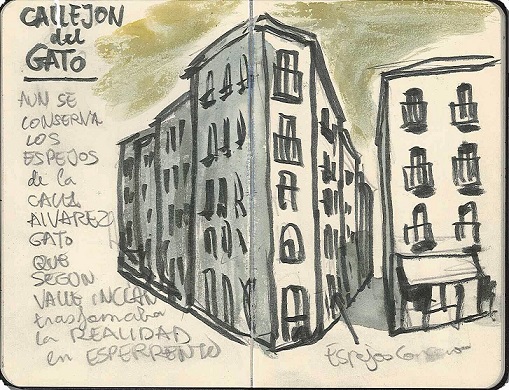 CALLEJON
del
GATO
AUN SE
CONSERVA
LOS
ESPEJOS
de la
CALLE
ALVAREZ
GATO
QUE
SEGUN
VALLE INCLAN
trasformaba
la REALIDAD
en ESPERPENTO
Espejos